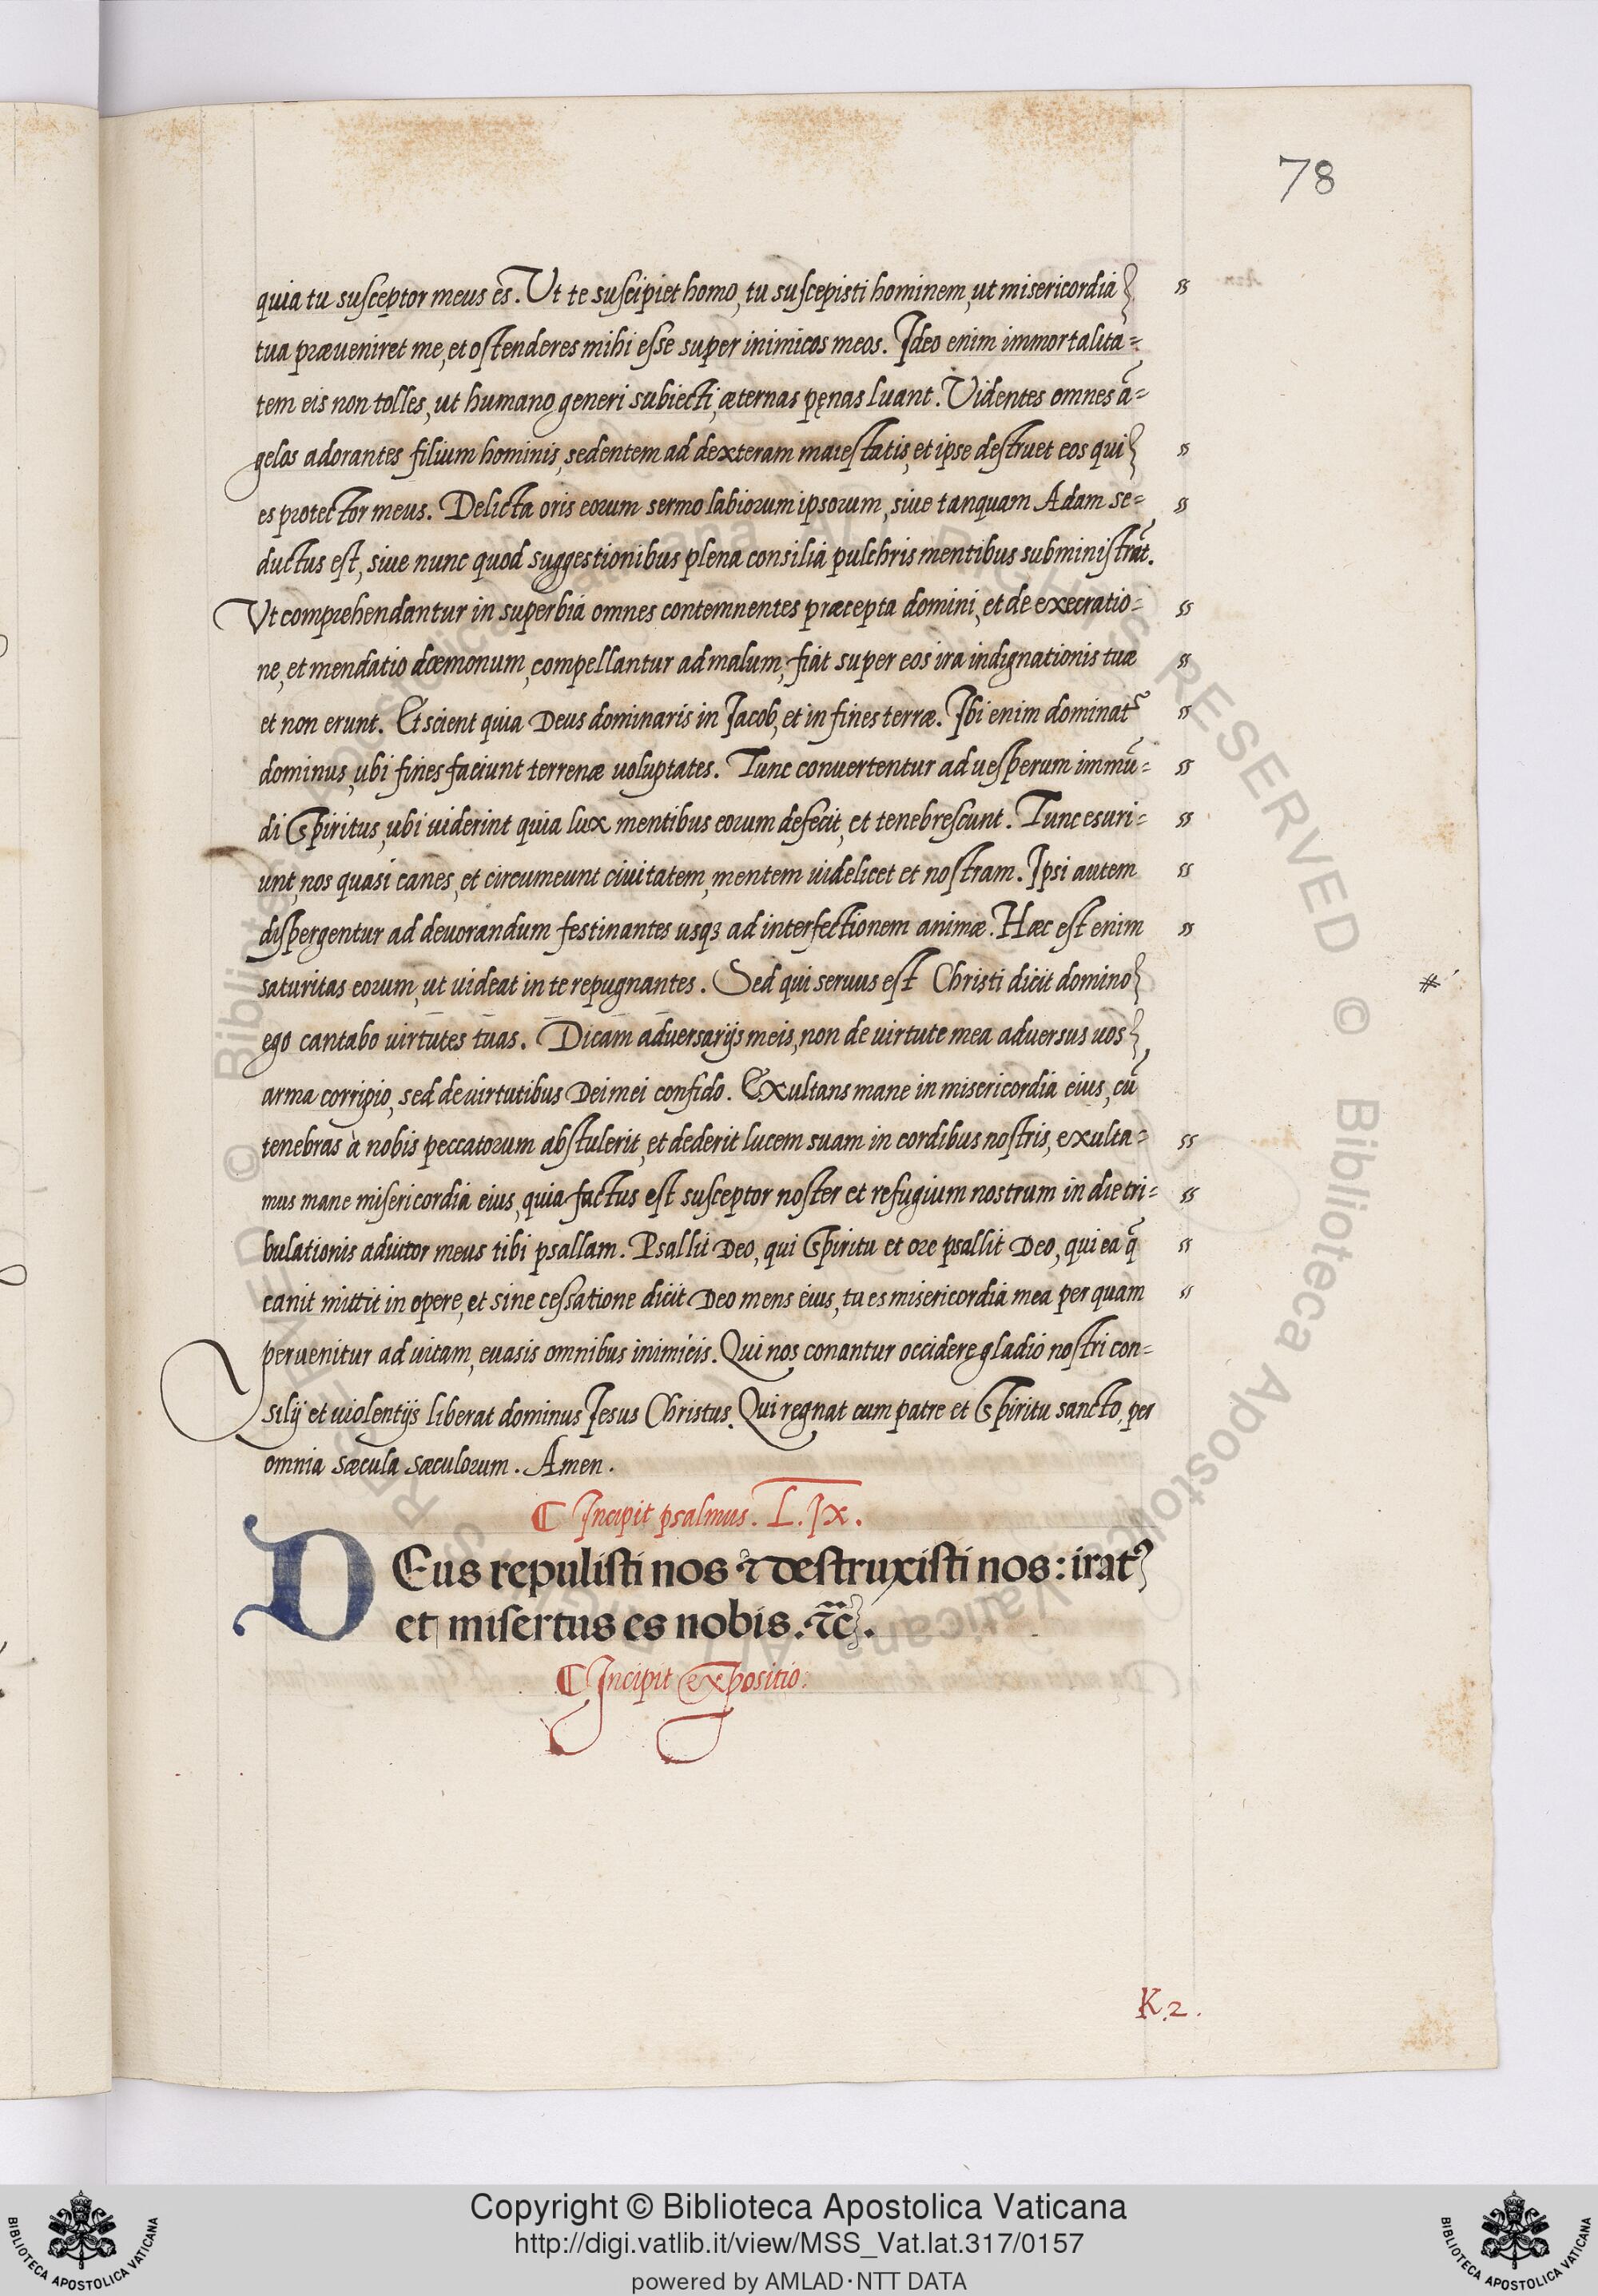 78
quia tu susceptor meus es. Ut te suscipiet homo, tu suscepisti hominem, ut misericordia
tua præueniret me, et ostenderes mihi esse super inimicos meos. Ideo enim immortalita=
tem eis non tolles, ut humano generi subiecti, æternas pęnas luant. Videntes omnes ā=
gelos adorantes filium hominis, sedentem ad dexteram maiestatis, et ipse destruet eos qui
es protector meus. Delicta oris eorum sermo labiorum ipsorum, siue tanquam Adam se=
ductus est, siue nunc quod suggestionibus plena consilia pulchris mentibus subministrāt.
Vt comprehendantur in superbia omnes contemnentes præcepta domini, et de execratio=
ne, et mendatio dœmonum, compellantur ad malum, fiat super eos ira indignationis tuæ
et non erunt. Et scient quia Deus dominaris in Jacob, et in fines terræ. Ibi enim dominat᷑
dominus, ubi fines faciunt terrenæ uoluptates. Tunc conuertentur ad uesperum immū=
di Spiritus, ubi uiderint quia lux mentibus eorum defecit, et tenebrescunt. Tunc esuri=
unt, nos quasi canes, et circumeunt ciuitatem, mentem uidelicet et nostram. Ipsi autem
dispergentur ad deuorandum festinantes usqꝫ ad interfectionem animæ. Hæc est enim
saturitas eorum, ut uideat in te repugnantes. Sed qui seruus est Christi dicit domino
ego cantabo uirtutes tuas. Dicam aduersarijs meis, non de uirtute mea aduersus uos
arma corripio, sed de uirtutibus Dei mei confido. Exultans mane in misericordia eius, cū
tenebras à nobis peccatorum abstulerit, et dederit lucem suam in cordibus nostris, exulta=
mus mane misericordia eius, quia factus est susceptor noster et refugium nostrum in die tri=
bulationis adiutor meus tibi psallam. Psallit Deo, qui Spiritu et ore psallit Deo, qui ea q̄
canit mittit in opere, et sine cessatione dicit Deo mens eius, tu es misericordia mea per quam
peruenitur ad uitam, euasis omnibus inimicis. Qui nos conantur occidere gladio nostri con=
silij et uiolentijs liberat dominus Jesus Christus. Qui regnat cum patre et Spiritu sancto, per
omnia sæcula sæculorum. Amen.
¶ Incipit psalmus. L.IX.
DEus repulisti nos ⁊ destruxisti nos: irat⁹
et misertus es nobis. ⁊c̄.
¶ Incipit expositio.
K.2.
Copyright © Biblioteca Apostolica Vaticana
http://digi.vatlib.it/view/MSS_Vat.lat.317/0157
powered by AMLAD·NTT DATA
BIBLIOTECA APOSTOLICA VATICANA
BIBLIOTECA APOSTOLICA VATICANA